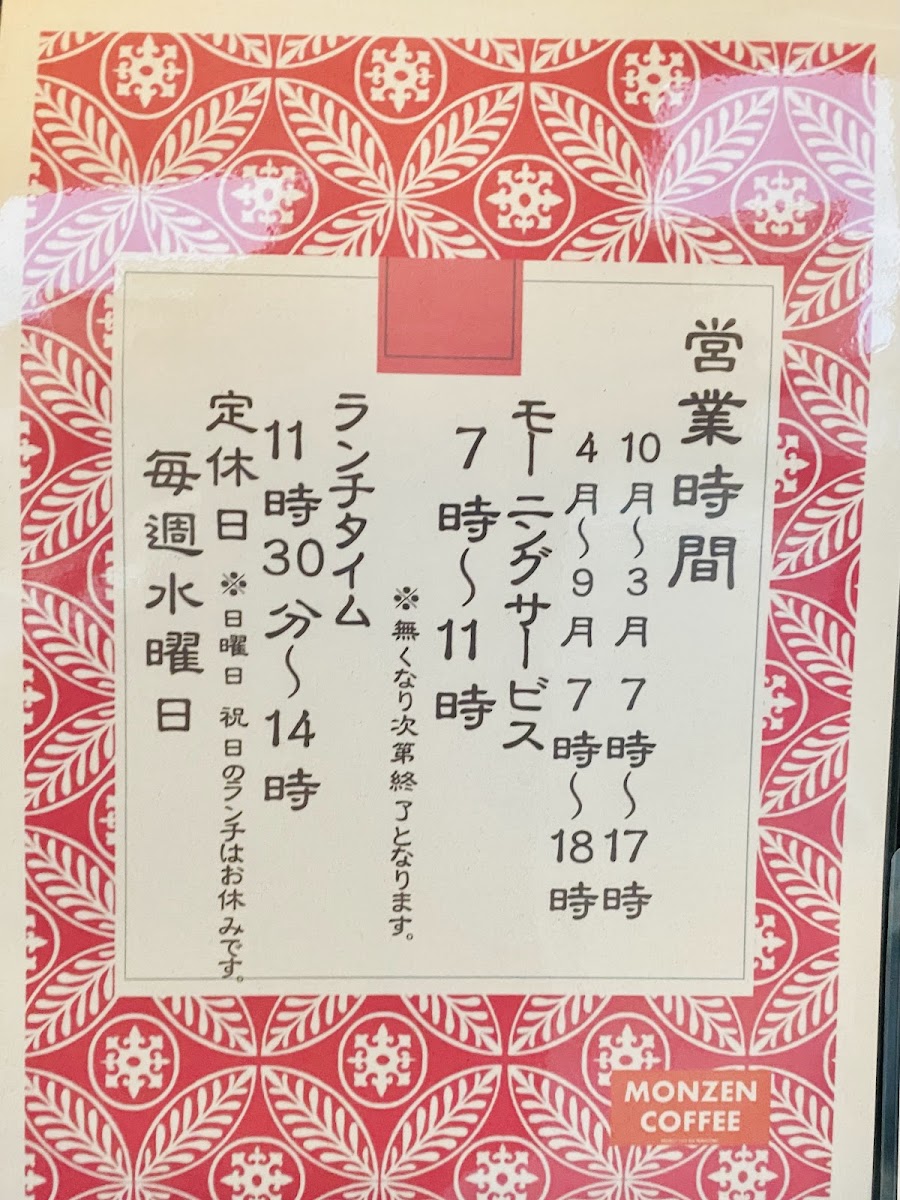 営業時間
10月〜3月 7時〜17時
4月〜9月 7時〜18時
モーニングサービス
7時〜11時
※無くなり次第終了となります。
ランチタイム
11時30分〜14時
※日曜日 祝日のランチはお休みです。
定休日
毎週水曜日
MONZEN
COFFEE